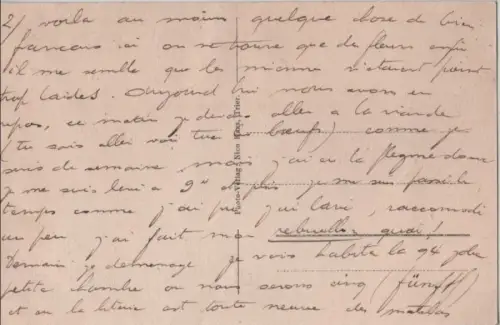 2/ voila au moins quelque chose de bien
francais ici on ne trouve que des fleurs enfin
il me semble que les miennes n'etaient point
trop laides. Aujourd hui nous avons eu
repos, ce matin je devais aller a la viande
(tu sais aller voir tuer le boeuf) comme je
suis de semaine, mais j'ai eu la flegme donc
je me suis levé a 9h de plus je me suis passé le
temps comme j'ai pu, j'ai lavé, raccomodé
un peu, j'ai fait mon rebouilleur quoi!
Demain je demenage je vais habité la 94 jolie
petite chambre ou nous serons cinq (fünf)
et ou la literie est toute neuve des matelas
Photo-Verlag J. Nico Trier